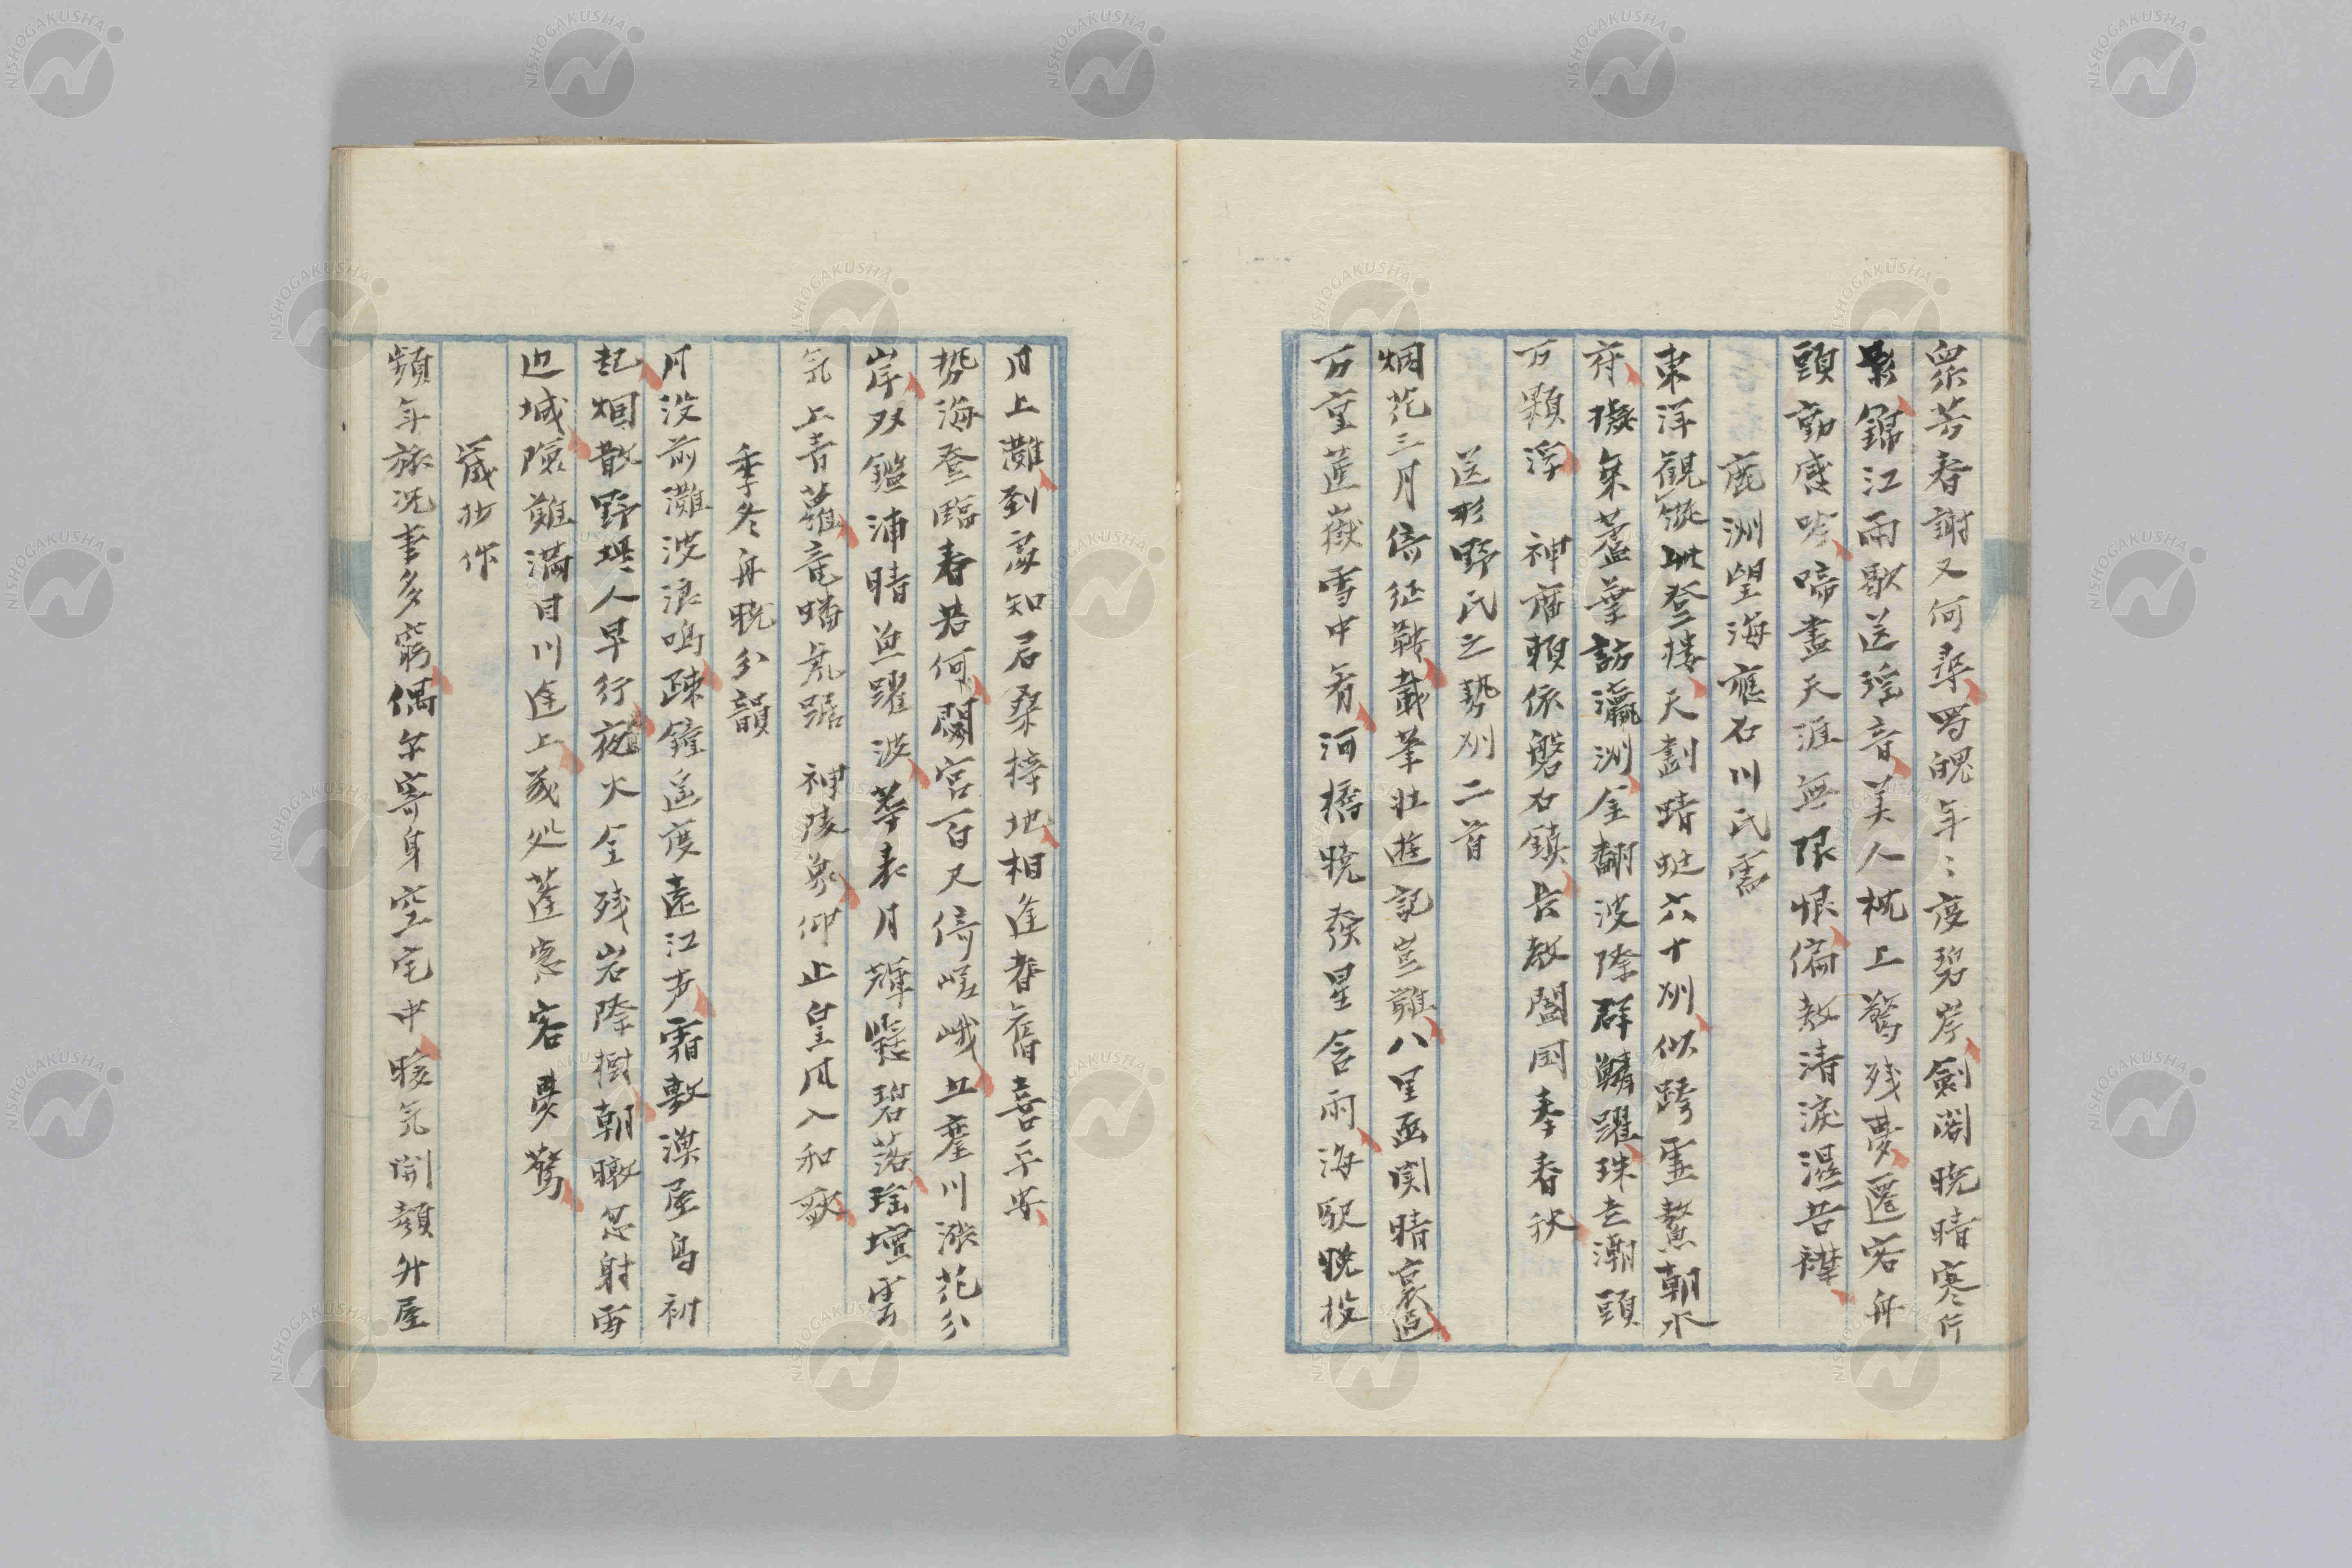 衆芳春謝又何尋蜀魄年〻度碧岑劍閣曉晴寒行
影錦江雨歇送瑶音美人枕上驚残夢遷客舟
頭動感吟啼盡天涯無限恨偏教清涙濕吾襟
鹿洲望海應石川氏需
東洋観𠊓此登楼天劃蜻蜓六十州似跨霊鰲朝水
府擬乗蓬葉訪瀛洲金翻波際群鱗躍珠走潮頭
万顆浮 神廟頼依磐石鎮長教闔国奉春秋
送彩野氏之勢州二首
烟花三月倚征鞍載筆壮遊記豈難八里函関晴裏過
万重蓮嶽雪中看河橋暁發星含雨海駅晩投
月上灘到處知君桑梓地相逢眷舊喜平安
勢海登臨春若何閟宮百尺倚嵯峨五峯川漲花分
岸双鑑浦晴魚躍波華表月輝懸碧落瑶壇雲
気上青蘿竜蟠虎踞 神陵象仰止皇風入和歌
季冬舟暁分韻
月没前灘波浪鳴疎鐘遥度遠江声霜敷漠屋烏初
起烟散野堤人早行夜火全残岩際樹朝暾忽射雨
辺城険難満目川途上幾処蓬窓客夢驚
歳抄作
頻年旅況事多窮偶尓寄身空宅中暖気開顔升屋